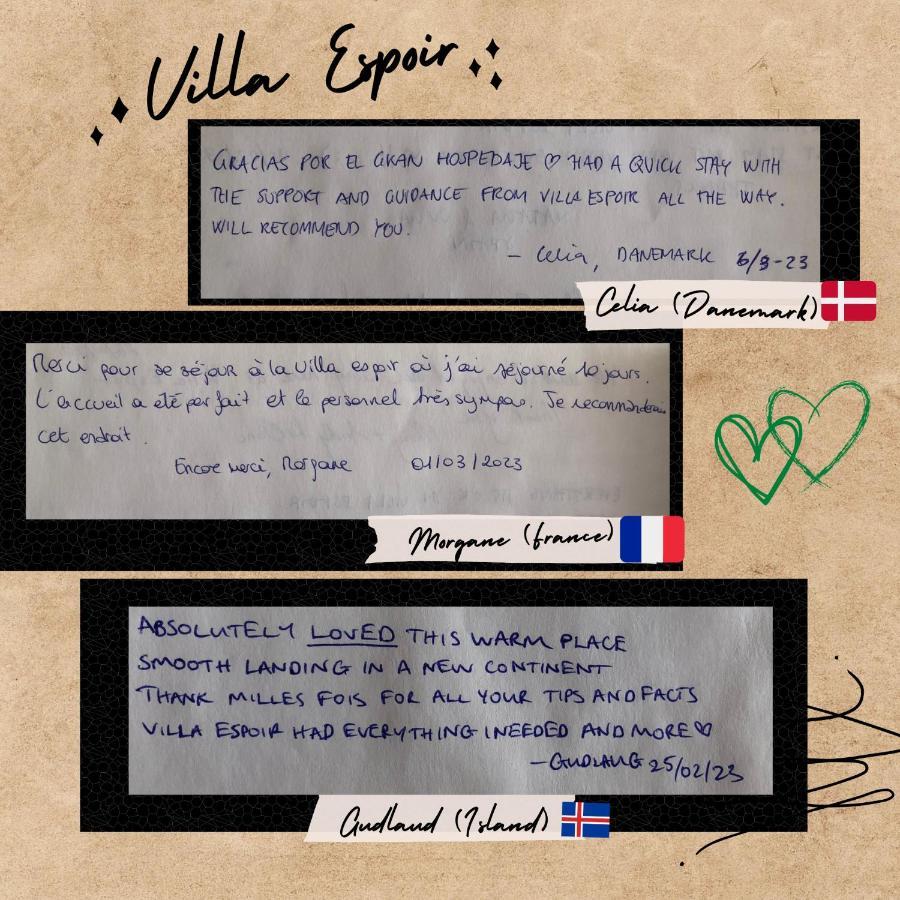 Villa Espoir
GRACIAS POR EL GRAN HOSPEDAJE ♡ HAD A QUICK STAY WITH
THE SUPPORT AND GUIDANCE FROM VILLA ESPOIR ALL THE WAY.
WILL RECOMMEND YOU.
- Celia, DANEMARK 6/3-23
Celia (Danemark)
Merci pour se séjour à la villa espoir où j'ai séjourné 10 jours.
L'accueil a été parfait et le personnel très sympas. Je recommanderai
cet endroit.
Encore merci, Morgane 01/03/2023
Morgane (france)
ABSOLUTELY LOVED THIS WARM PLACE
SMOOTH LANDING IN A NEW CONTINENT
THANK MILLES FOIS FOR ALL YOUR TIPS AND FACTS
VILLA ESPOIR HAD EVERYTHING I NEEDED AND MORE ♡
- GUDLAUG 25/02/23
Gudlaud (Island)